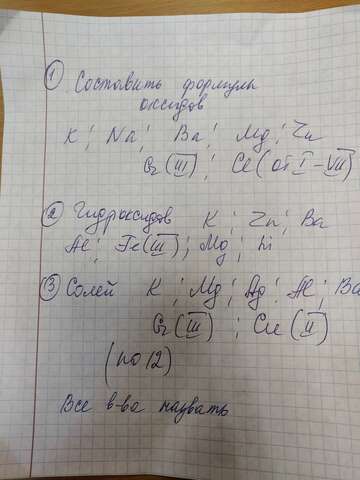 ① Составить формулы
оксидов
K; Na; Ba; Mg; Zn
Cr(III); Cl(от I–VII)
② Гидроксидов K; Zn; Ba
Al; Fe(III); Mg; Li
③ Солей K; Mg; Ag; Al; Ba
Cr(III); Cu(II)
(по 12)
Все в-ва назвать